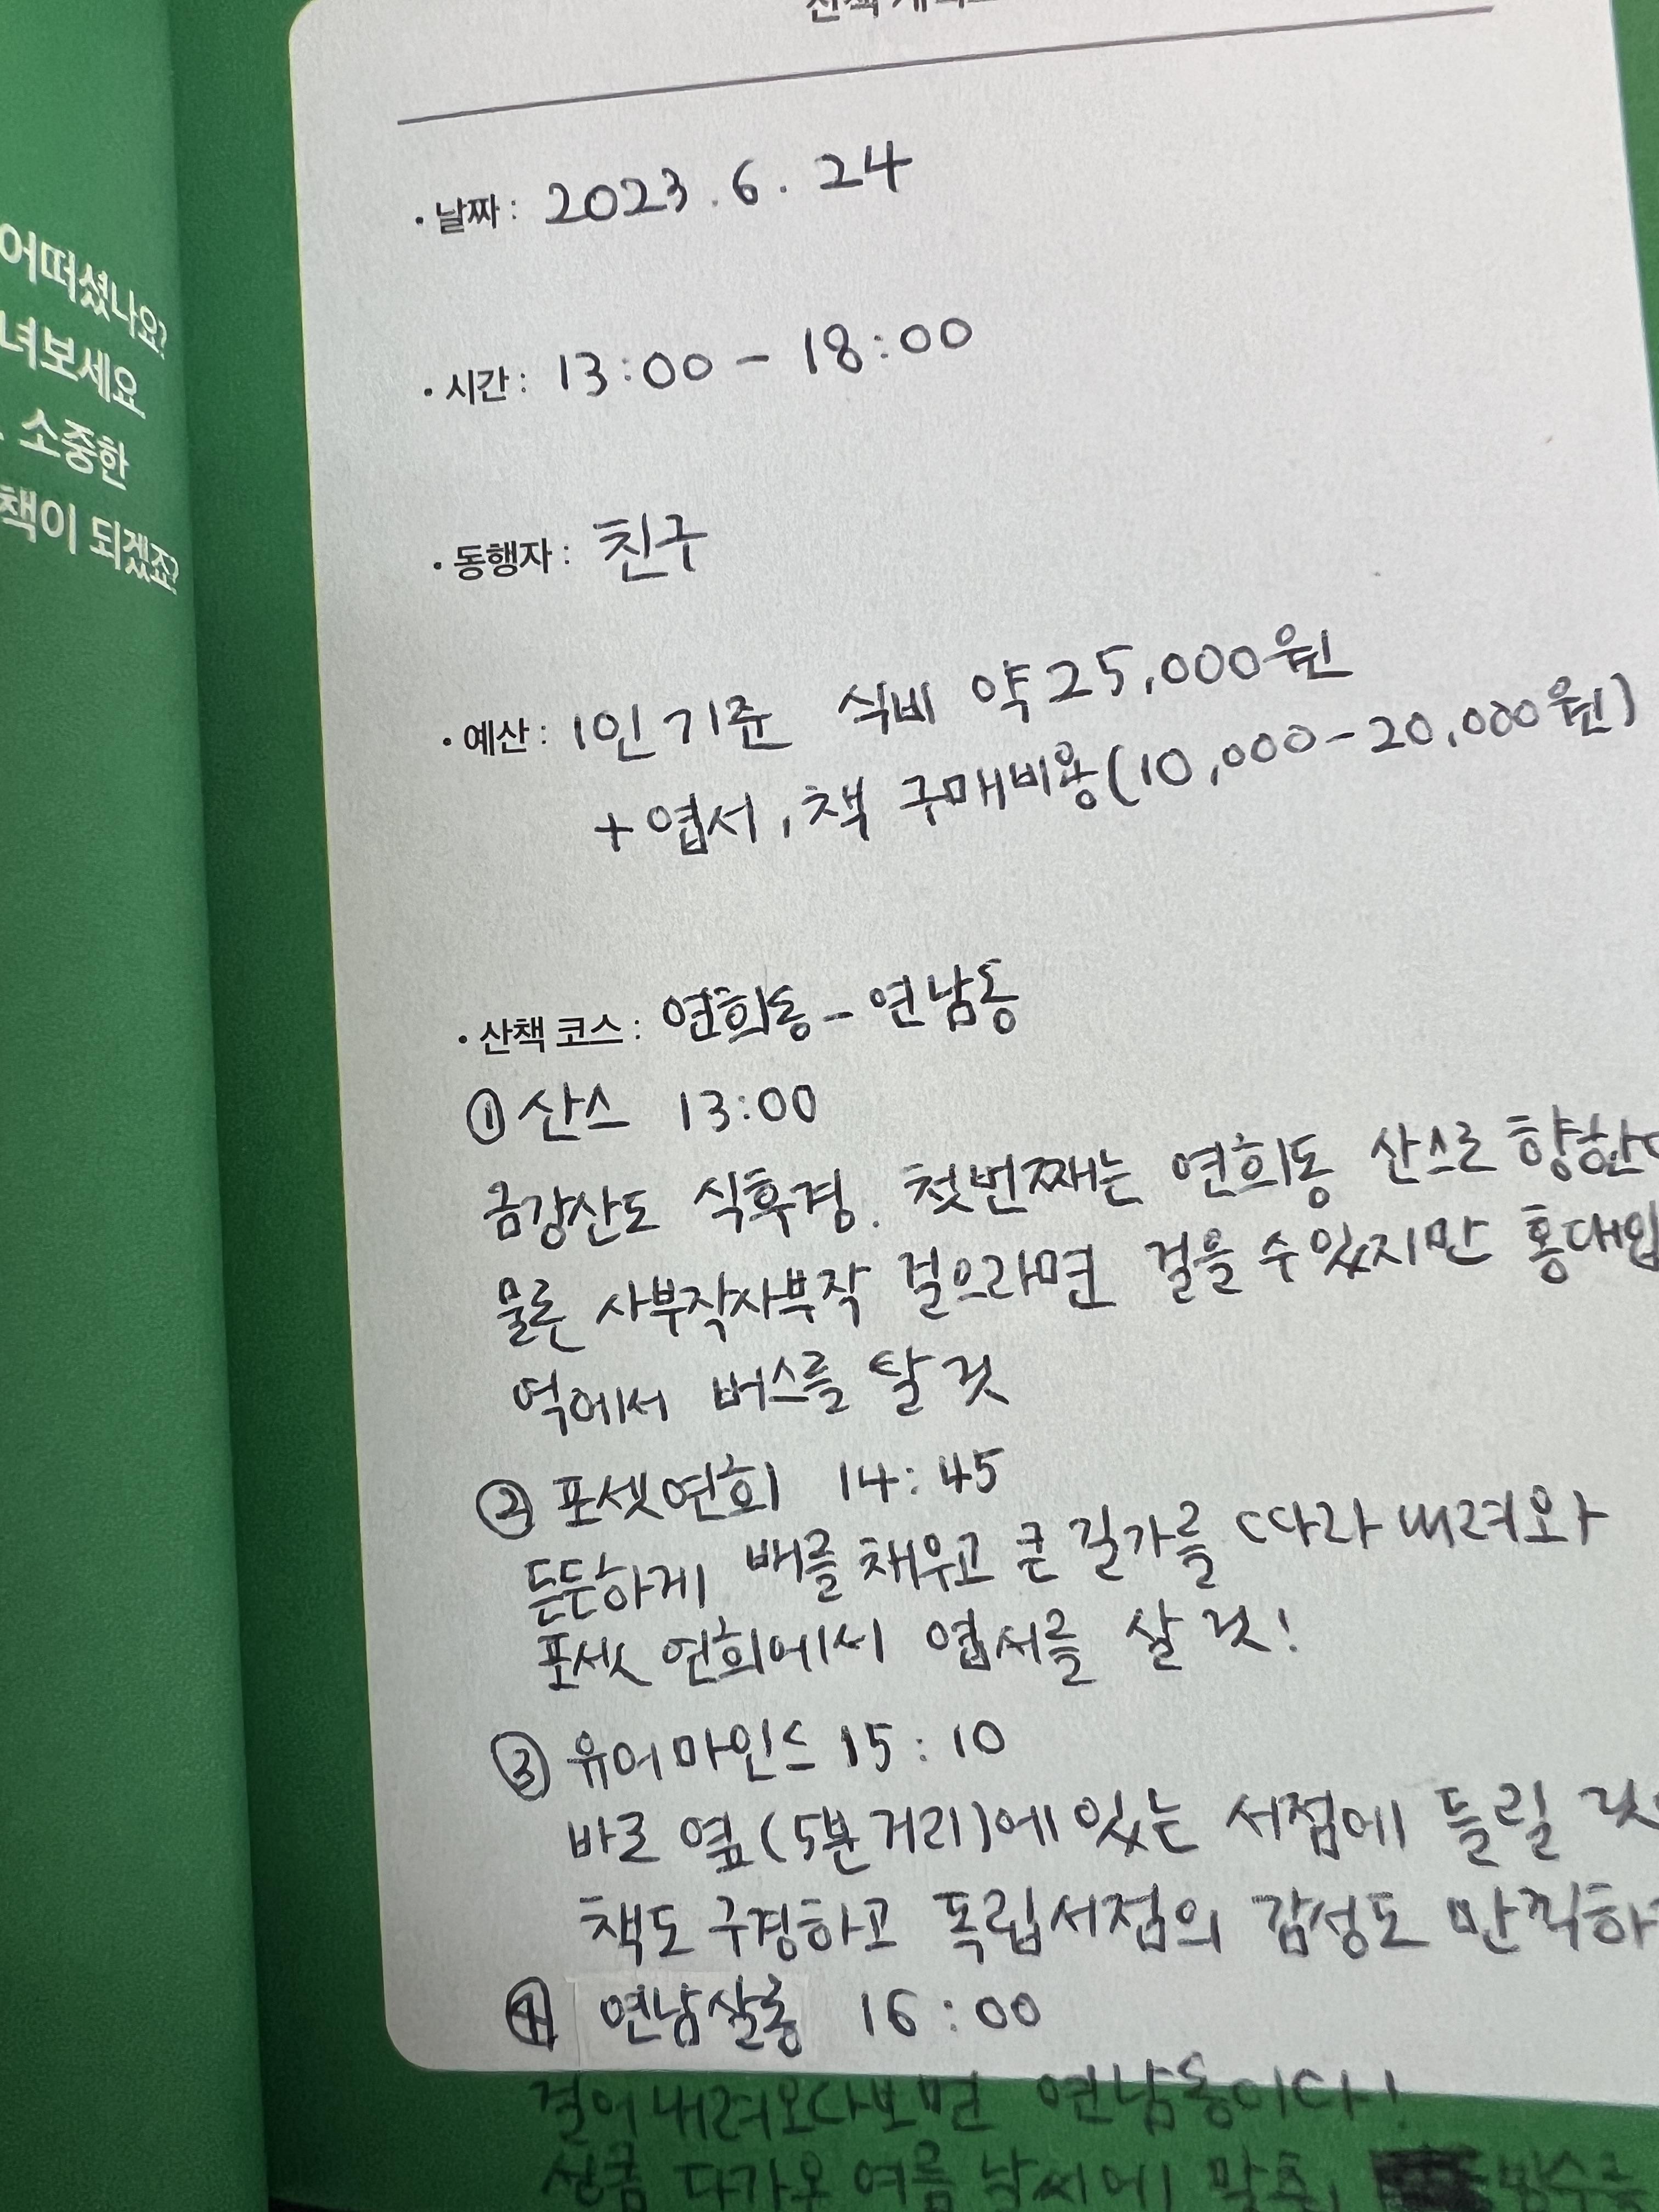 어떠셨나요?
녀보세요
소중한
책이 되겠죠?
산책
· 날짜 : 2023. 6. 24
· 시간 : 13:00 - 18:00
· 동행자 : 친구
· 예산 : 1인 기준 식비 약 25,000원
+ 엽서, 책 구매비용(10,000-20,000원)
· 산책 코스 : 연희동 - 연남동
① 산스 13:00
금강산도 식후경. 첫번째는 연희동 산스로 향한다
물론 사부작사부작 걸으라면 걸을 수 있지만 홍대입
역에서 버스를 탈 것
② 포셋연희 14:45
든든하게 배를 채우고 큰 길가를 따라 내려와
포셋 연희에서 엽서를 살 것!
③ 유어마인드 15:10
바로 옆(5분거리)에 있는 서점에 들릴 것
책도 구경하고 독립서점의 감성도 만끽하
④ 연남살롱 16:00
걸어내려오다보면 연남동이다!
성큼 다가온 여름 날씨에 맞춰 빙수를